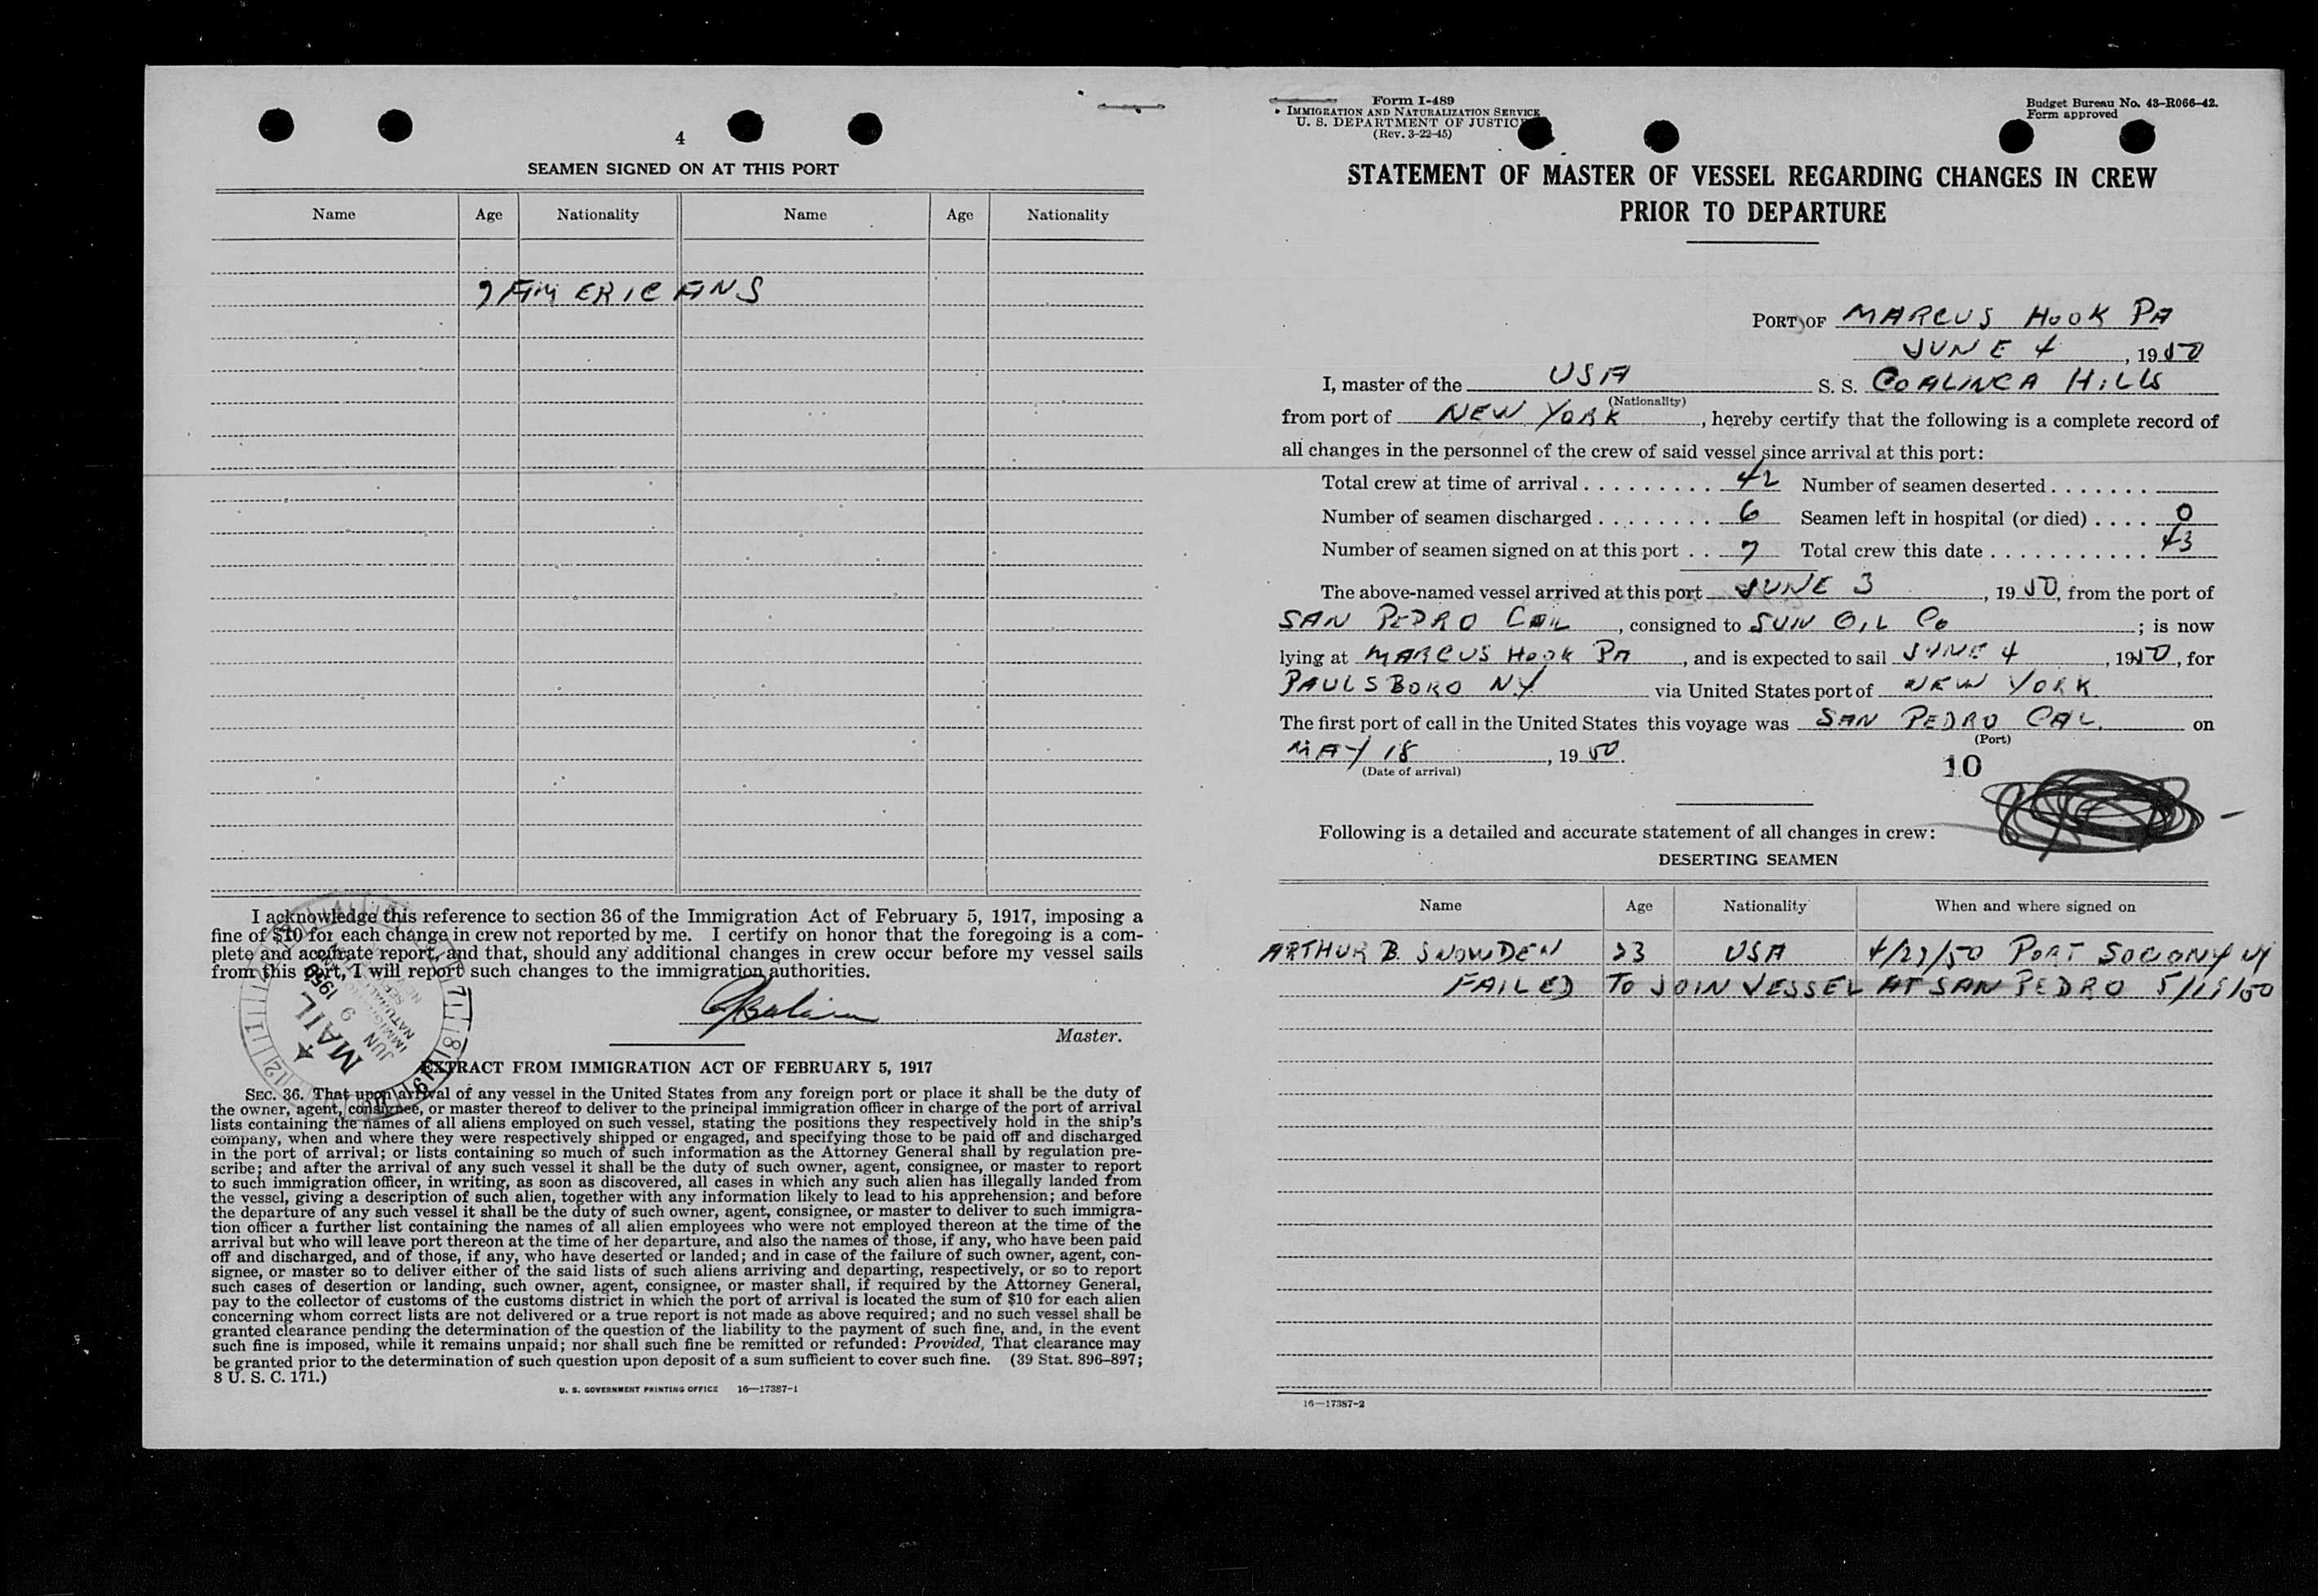 4
SEAMEN SIGNED ON AT THIS PORT
Name Age Nationality Name Age Nationality
7 AMERICANS
I acknowledge this reference to section 36 of the Immigration Act of February 5, 1917, imposing a
fine of $10 for each change in crew not reported by me. I certify on honor that the foregoing is a com-
plete and accurate report, and that, should any additional changes in crew occur before my vessel sails
from this port, I will report such changes to the immigration authorities.
Master.
MAIL
JUN 9 1950
EXTRACT FROM IMMIGRATION ACT OF FEBRUARY 5, 1917
SEC. 36. That upon arrival of any vessel in the United States from any foreign port or place it shall be the duty of
the owner, agent, consignee, or master thereof to deliver to the principal immigration officer in charge of the port of arrival
lists containing the names of all aliens employed on such vessel, stating the positions they respectively hold in the ship's
company, when and where they were respectively shipped or engaged, and specifying those to be paid off and discharged
in the port of arrival; or lists containing so much of such information as the Attorney General shall by regulation pre-
scribe; and after the arrival of any such vessel it shall be the duty of such owner, agent, consignee, or master to report
to such immigration officer, in writing, as soon as discovered, all cases in which any such alien has illegally landed from
the vessel, giving a description of such alien, together with any information likely to lead to his apprehension; and before
the departure of any such vessel it shall be the duty of such owner, agent, consignee, or master to deliver to such immigra-
tion officer a further list containing the names of all alien employees who were not employed thereon at the time of the
arrival but who will leave port thereon at the time of her departure, and also the names of those, if any, who have been paid
off and discharged, and of those, if any, who have deserted or landed; and in case of the failure of such owner, agent, con-
signee, or master so to deliver either of the said lists of such aliens arriving and departing, respectively, or so to report
such cases of desertion or landing, such owner, agent, consignee, or master shall, if required by the Attorney General,
pay to the collector of customs of the customs district in which the port of arrival is located the sum of $10 for each alien
concerning whom correct lists are not delivered or a true report is not made as above required; and no such vessel shall be
granted clearance pending the determination of the question of the liability to the payment of such fine, and, in the event
such fine is imposed, while it remains unpaid; nor shall such fine be remitted or refunded: Provided, That clearance may
be granted prior to the determination of such question upon deposit of a sum sufficient to cover such fine. (39 Stat. 896–897;
8 U. S. C. 171.)
U. S. GOVERNMENT PRINTING OFFICE 16—17387-1
Form I-489
IMMIGRATION AND NATURALIZATION SERVICE
U. S. DEPARTMENT OF JUSTICE
(Rev. 3-22-45)
Budget Bureau No. 43-R066-42.
Form approved
STATEMENT OF MASTER OF VESSEL REGARDING CHANGES IN CREW
PRIOR TO DEPARTURE
PORT OF MARCUS HOOK PA
JUNE 4, 1950
I, master of the USA S. S. COALINGA HILLS
(Nationality)
from port of NEW YORK, hereby certify that the following is a complete record of
all changes in the personnel of the crew of said vessel since arrival at this port:
Total crew at time of arrival . . . . . . . . . . 42 Number of seamen deserted . . . . . . .
Number of seamen discharged . . . . . . . . 6 Seamen left in hospital (or died) . . . . 0
Number of seamen signed on at this port . . 7 Total crew this date . . . . . . . . . . . . 43
The above-named vessel arrived at this port JUNE 3, 1950, from the port of
SAN PEDRO CAL, consigned to SUN OIL CO; is now
lying at MARCUS HOOK PA, and is expected to sail JUNE 4, 1950, for
PAULSBORO NY via United States port of NEW YORK
The first port of call in the United States this voyage was SAN PEDRO CAL. on
(Port)
MAY 18, 1950.
(Date of arrival)
10
Following is a detailed and accurate statement of all changes in crew:
DESERTING SEAMEN
Name Age Nationality When and where signed on
ARTHUR B. SNOWDEN 23 USA PORT SOCONY NY
FAILED TO JOIN VESSEL AT SAN PEDRO
16—17387-2